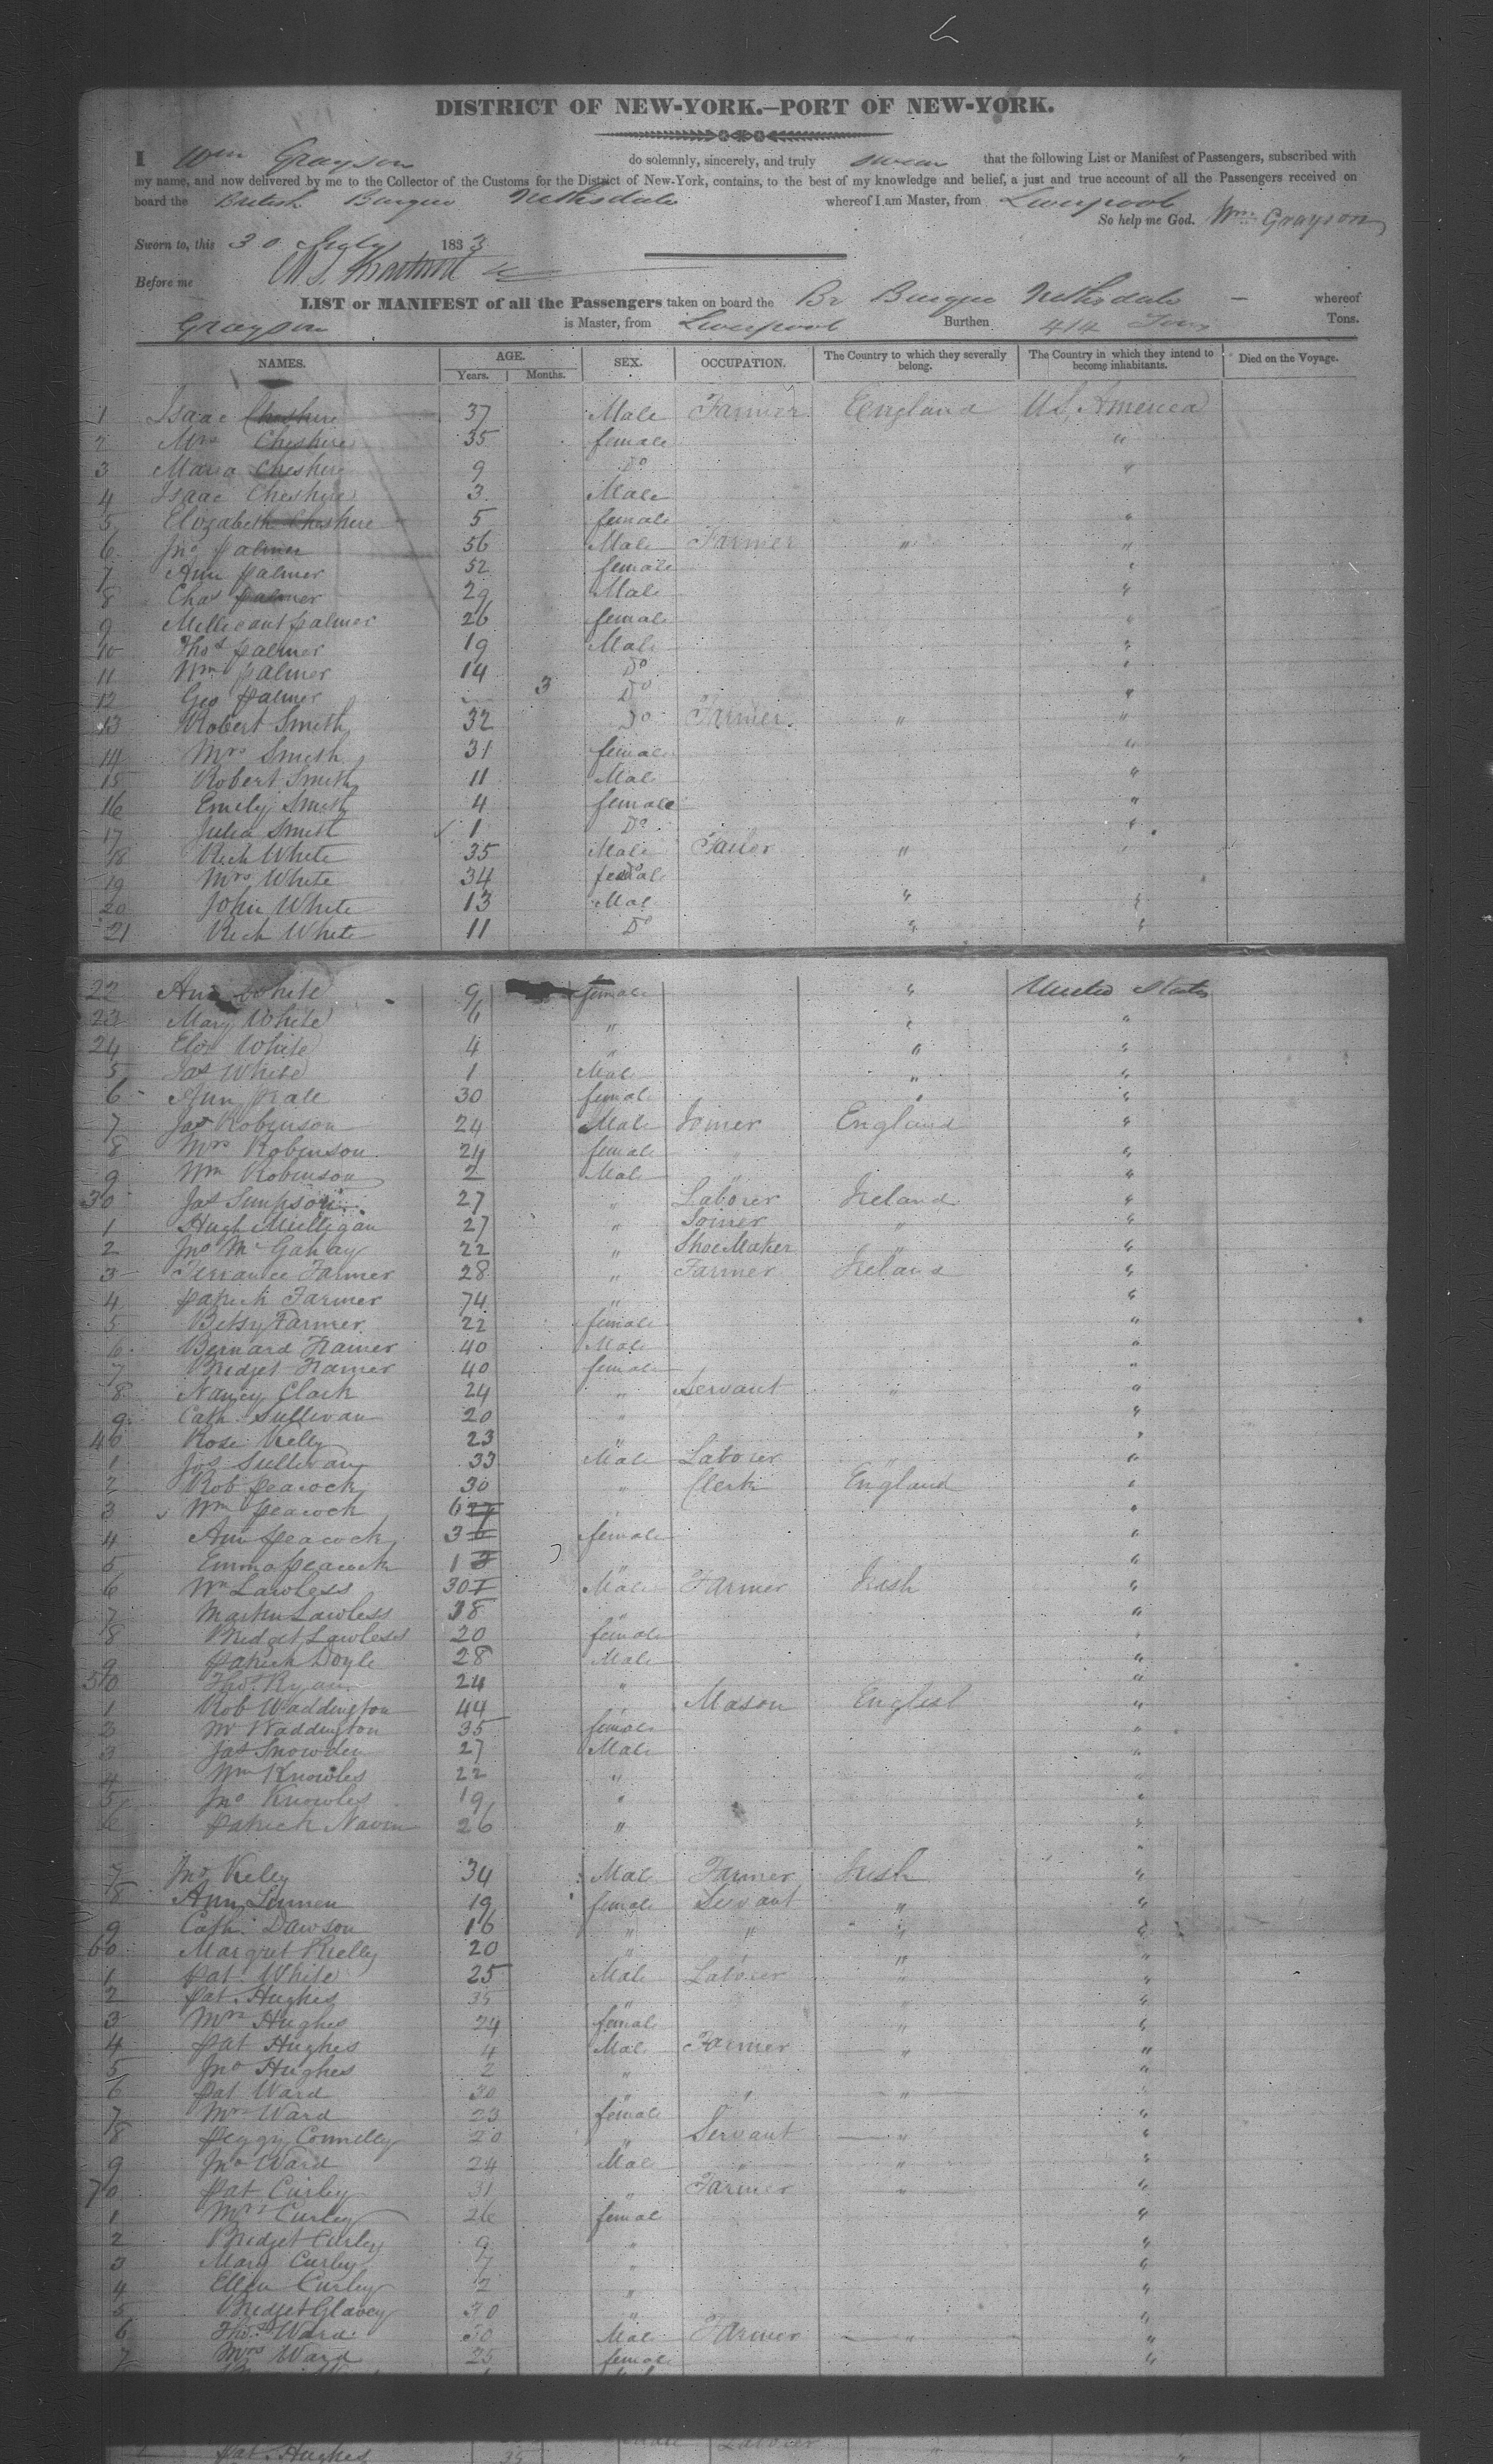 DISTRICT OF NEW-YORK.—PORT OF NEW-YORK.
I Wm Grayson do solemnly, sincerely, and truly swear that the following List or Manifest of Passengers, subscribed with
my name, and now delivered by me to the Collector of the Customs for the District of New-York, contains, to the best of my knowledge and belief, a just and true account of all the Passengers received on
board the British Barque Nithsdale whereof I am Master, from Liverpool
So help me God. Wm Grayson
Sworn to, this 30 July 1833
Before me
LIST or MANIFEST of all the Passengers taken on board the Br Barque Nithsdale whereof
Grayson is Master, from Liverpool Burthen 414 Tons Tons.
NAMES. AGE. SEX. OCCUPATION. The Country to which they severally belong. The Country in which they intend to become inhabitants. Died on the Voyage.
Years. Months.
1 Isaac Cheshire 37 Male Farmer England U.S. America
2 Mrs Cheshire 35 female "
3 Maria Cheshire 9 Do "
4 Isaac Cheshire 3 Male
5 Elizabeth Cheshire 5 female "
6 Jno Palmer 56 Male Farmer " "
7 Ann Palmer 52 female "
8 Chas Palmer 29 Male "
9 Millicant Palmer 26 female "
10 Thos Palmer 19 Male "
11 Wm Palmer 14 Do "
12 Geo Palmer 3 Do "
13 Robert Smith 32 Do Farmer " "
14 Mrs Smith 31 female "
15 Robert Smith 11 Male "
16 Emily Smith 4 female "
17 Julia Smith 1 Do "
18 Rich White 35 Male Tailor " "
19 Mrs White 34 female
20 John White 13 Mal " "
21 Rich White 11 Do " "
22 Ann White 9 female " United States
23 Mary White 6 " " "
24 Eliz White 4 " " "
5 Jas White 1 Male " "
6 Ann Kale 30 female " "
7 Jas Robinson 24 Male Joiner England "
8 Mrs Robinson 24 female "
9 Wm Robinson 2 Male "
30 Jas Simpson 27 " Laborer Ireland "
1 Hugh Milligan 27 " Joiner " "
2 Jno McGahay 22 " Shoe Maker "
3 Terrance Farmer 28 " Farmer Ireland "
4 Patrick Farmer 74 " "
5 Betsy Farmer 22 female "
6 Bernard Framer 40 Male "
7 Bridget Framer 40 female "
8 Nancy Clark 24 " Servant " "
9 Cath. Sullivan 20 " "
40 Rose Kelly 23 " "
1 Jos Sullivan 33 Male Laborer "
2 Rob Peacock 30 " Clerk England "
3 Wm Peacock 6 "
4 Ann Peacock 3 female "
5 Emma Peacock 1 "
6 Wm Lawless 30 Male Farmer Irish "
7 Martin Lawless 38 " "
8 Bridget Lawless 20 female "
9 Patrick Doyle 28 Male "
50 Thos Ryan 24 " "
1 Rob Waddington 44 Mason English "
2 Waddington 35 female "
3 Jas Snowden 27 Male "
4 Wm Knowles 22 "
5 Jno Knowles 19 " "
6 Patrick Navin 26 " "
7 Jno Keley 34 Male Farmer Irish "
8 Ann 19 female Servant " "
9 Cath. Dawson 16 " " " "
60 Margret Kielly 20 " " "
1 Pat. White 25 Male Laborer " "
2 Pat. Hughes 35 "
3 Mrs Hughes 24 female " "
4 Pat Hughes 4 Male Farmer " "
5 Jno Hughes 2 " "
6 Pat Ward 30 " " "
7 Mrs Ward 23 female "
8 Peggy Connelly 20 " Servant " "
9 Jno Ward 24 Male " " "
70 Pat Curley 31 " Farmer " "
1 Mrs Curley 26 female "
2 Bridget Curley 9 " "
3 Mary Curley 7 " "
4 Ellen Curley 2 " "
5 Bridget Glavey 30 " "
6 Thos Ward 30 Male Farmer " "
7 Mrs Ward 25 female "
Pat. Hughes 35 Laborer "